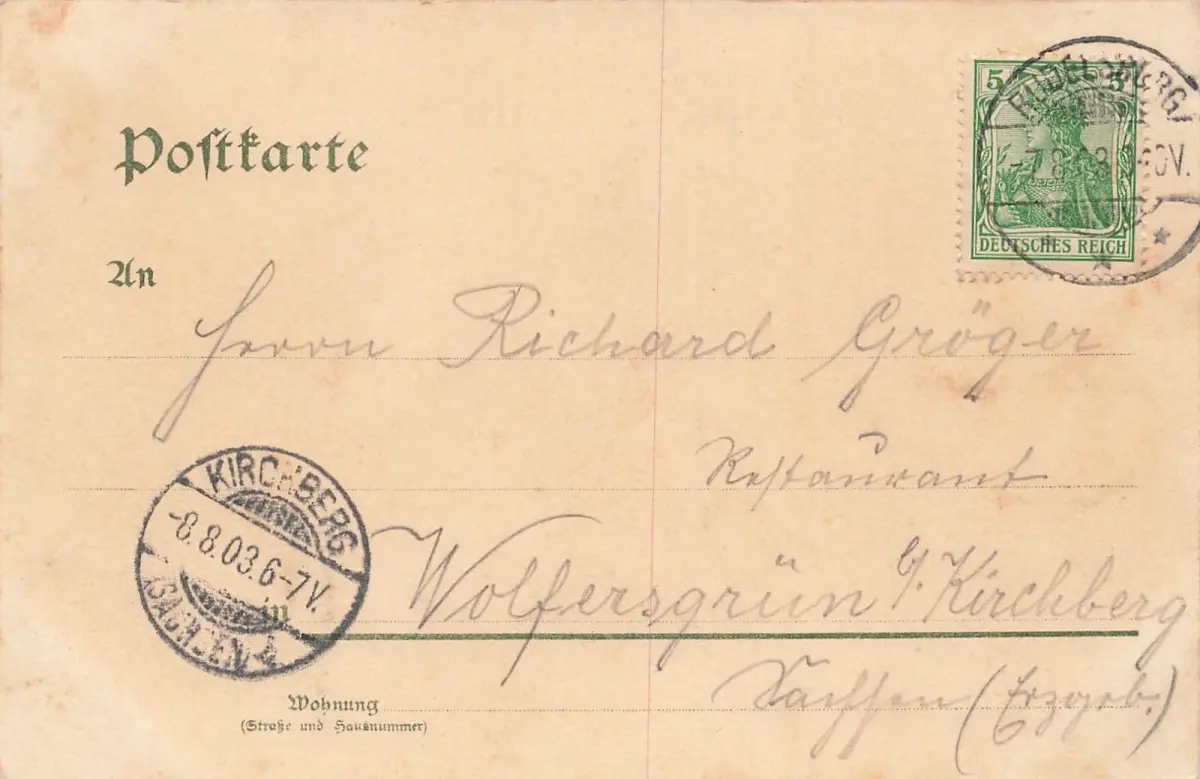 Postkarte
5 5
DEUTSCHES REICH
An
Herrn Richard Gröger
Restaurant
KIRCHBERG
-8.8.03.6-7V.
(SACHSEN)
in
Wolfersgrün b/ Kirchberg
Sachsen (Erzgeb.)
Wohnung
(Straße und Hausnummer)